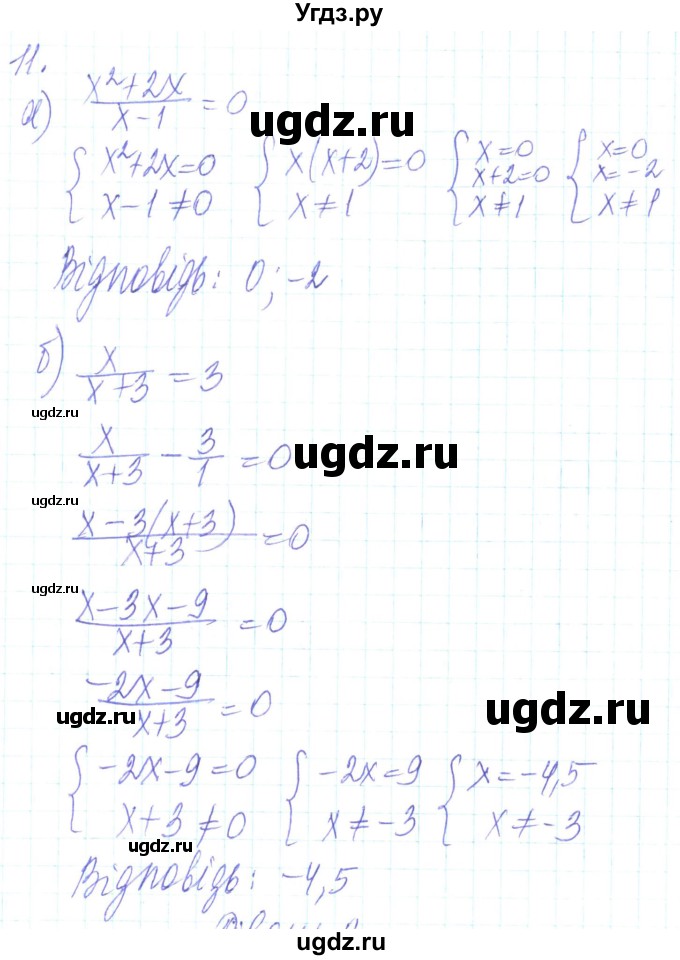 Угдз.ру
11.
а) (x²+2x)/(x-1) = 0
ugdz.ru
{ x²+2x=0 { x(x+2)=0 { x=0 { x=0
x-1≠0 x≠1 x+2=0 x=-2
x≠1 x≠1
Відповідь: 0; -2
б) x/(x+3) = 3
ugdz.ru
x/(x+3) - 3/1 = 0
ugdz.ru
ugdz.ru
(x-3(x+3))/(x+3) = 0
ugdz.ru
(x-3x-9)/(x+3) = 0
(-2x-9)/(x+3) = 0
ugdz.ru
ugdz.ru
{ -2x-9=0 { -2x=9 { x=-4,5
x+3≠0 x≠-3 x≠-3
ugdz.ru
Відповідь: -4,5
ugdz.ru